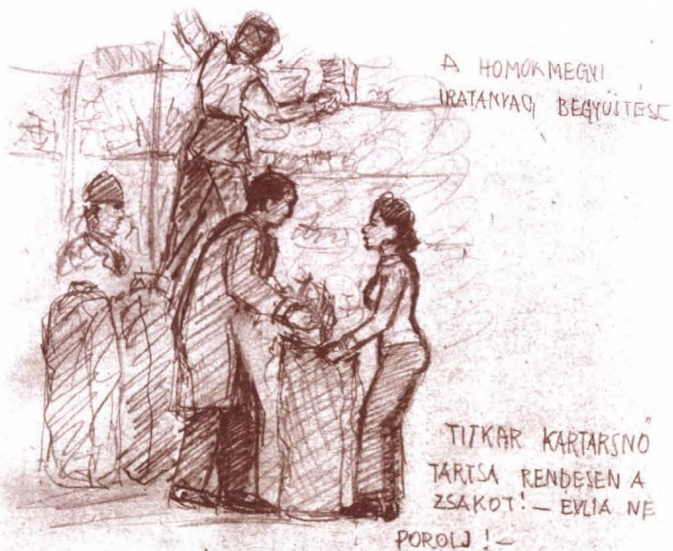 A HOMOKMEGYI
IRATANYAG BEGYŰJTÉSE
TITKAR KARTARSNŐ
TARTSA RENDESEN A
ZSAKOT! – EVLIA NE
POROLJ! –